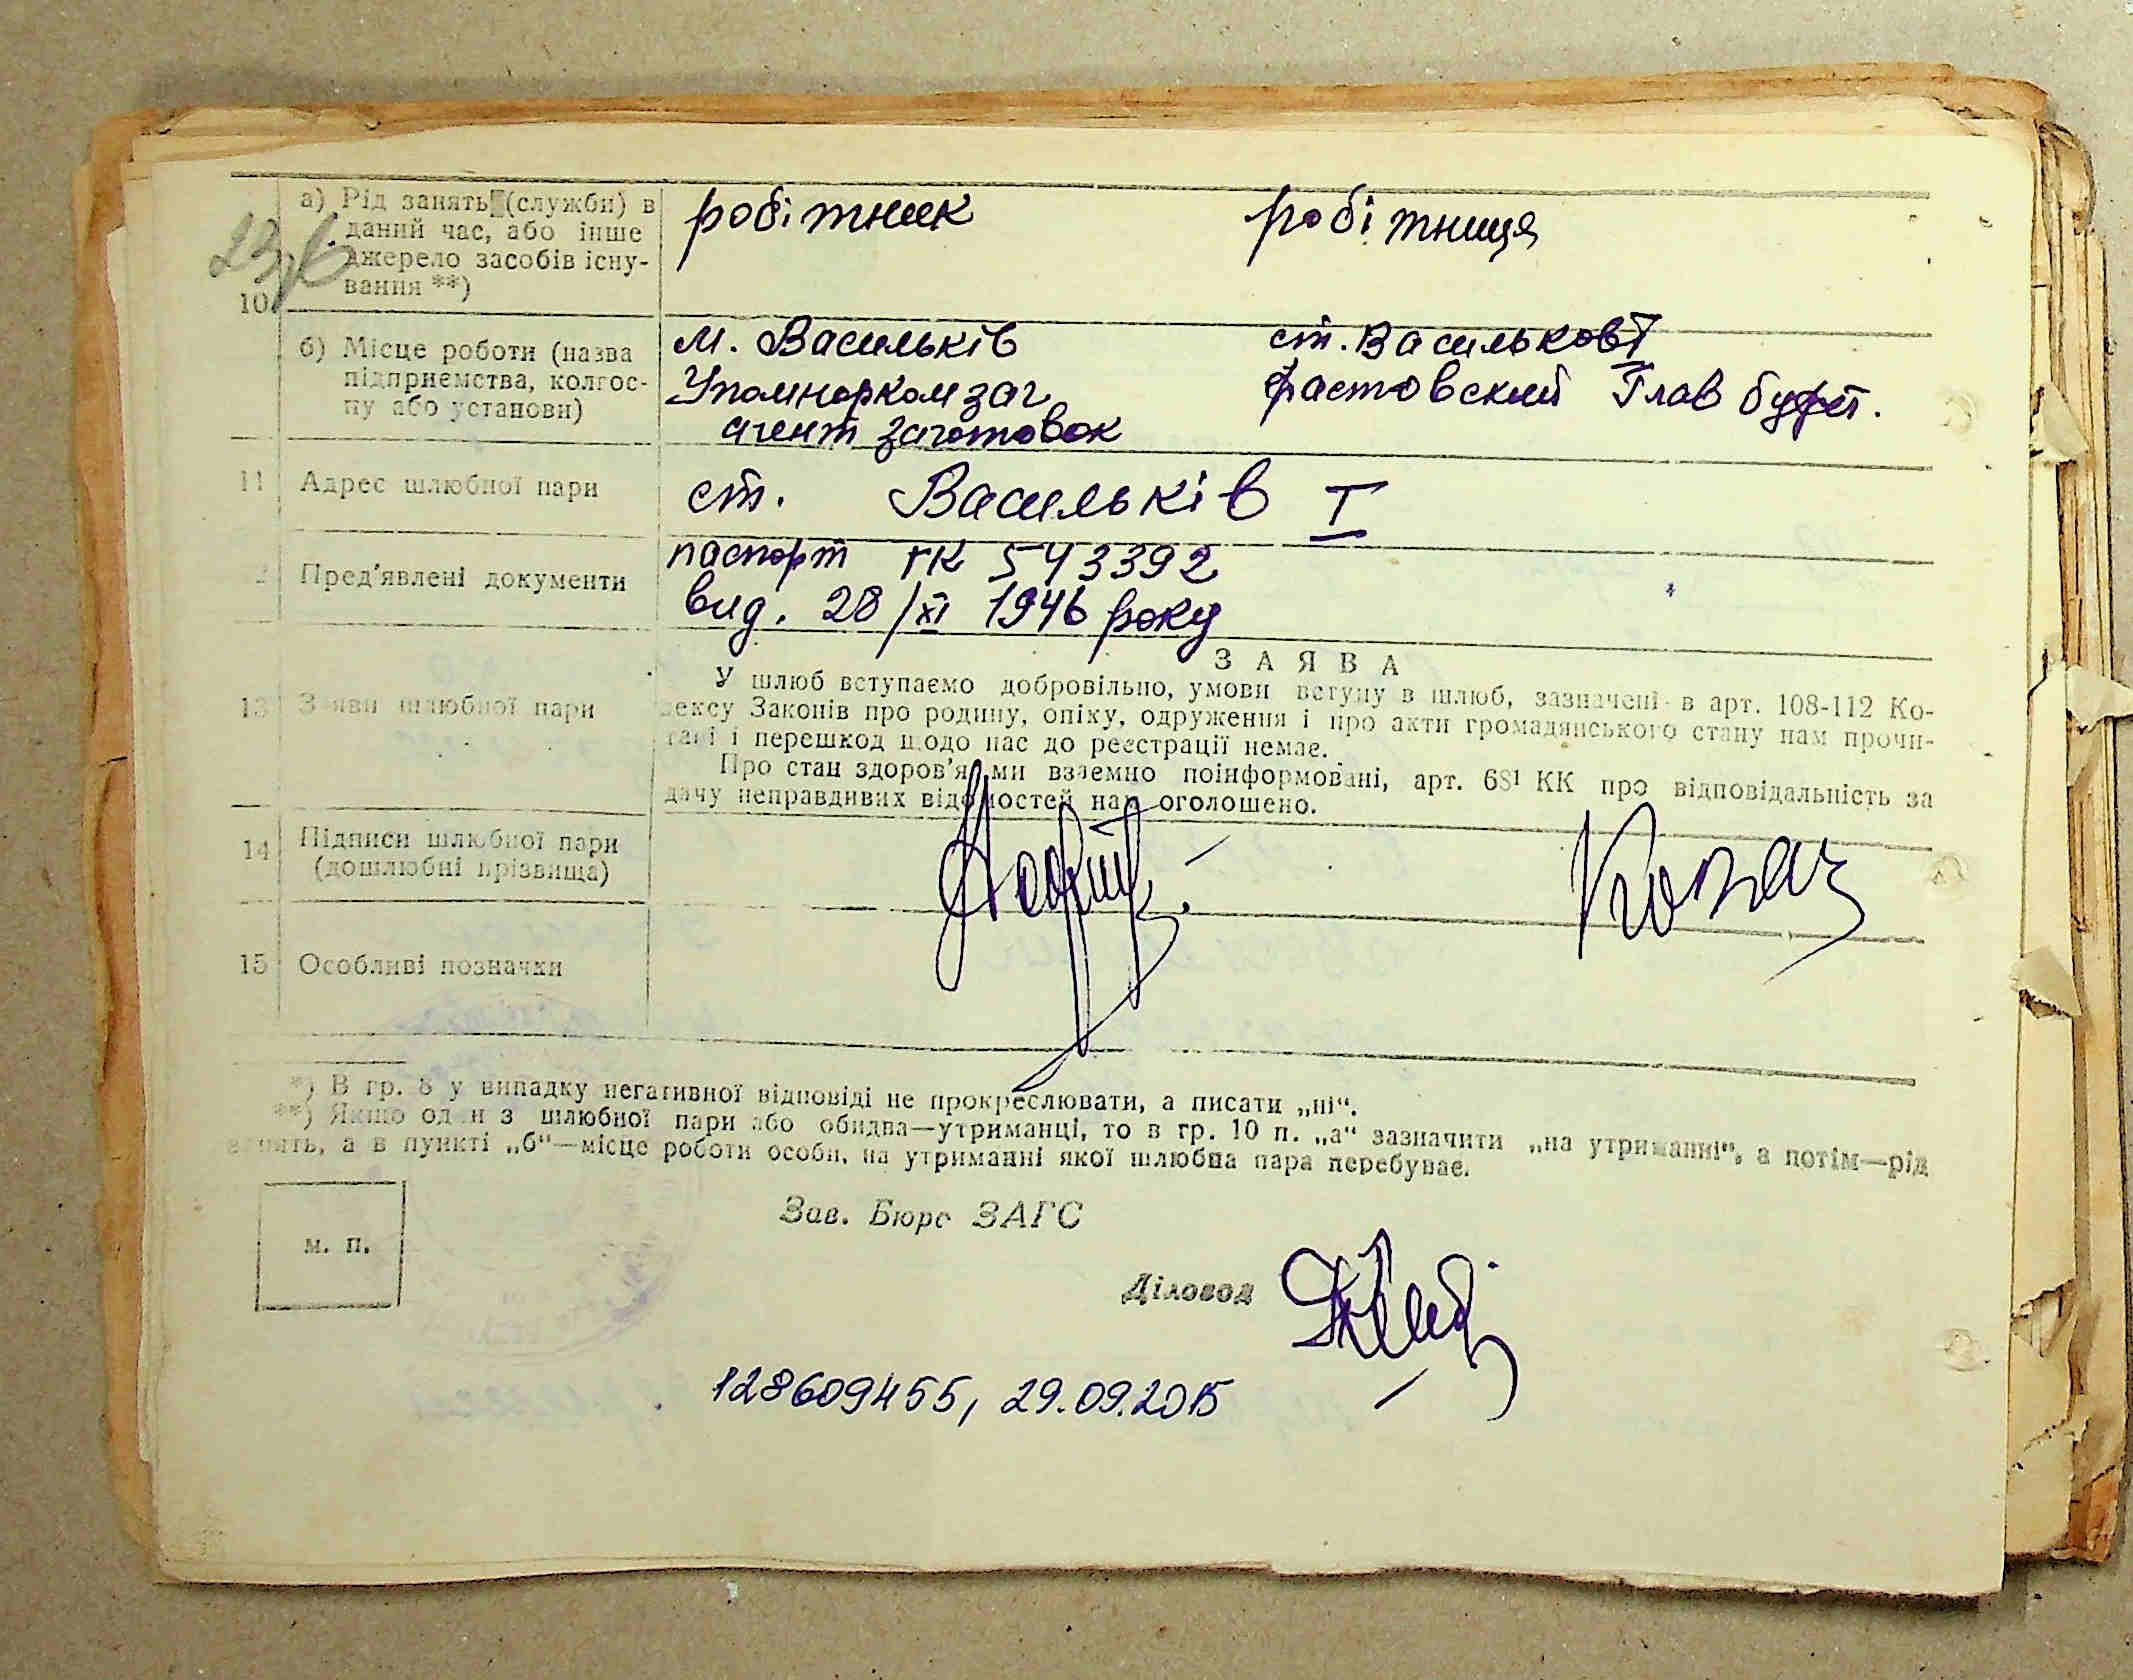 а) Рід занять (служби) в
даний час, або інше
джерело засобів існу-
вання **)
23
10
робітник
робітниця
б) Місце роботи (назва
підприємства, колгос-
пу або установи)
м. Васильків
Упомнаркомзаг
агент заготовок
ст. Васильков I
фастовский Глав буфет.
11 Адрес шлюбної пари
ст. Васильків I
Пред'явлені документи
паспорт ГК 543392
вид. 28/XI 1946 року
13 Заяви шлюбної пари
ЗАЯВА
У шлюб вступаємо добровільно, умови вступу в шлюб, зазначені в арт. 108-112 Ко-
дексу Законів про родину, опіку, одруження і про акти громадянського стану нам прочи-
тані і перешкод щодо нас до реєстрації немає.
Про стан здоров'я ми взаємно поінформовані, арт. 68¹ КК про відповідальність за
дачу неправдивих відомостей нам оголошено.
14 Підписи шлюбної пари
(дошлюбні прізвища)
Козач
15 Особливі позначки
*) В гр. 8 у випадку негативної відповіді не прокреслювати, а писати „ні“.
**) Якщо один з шлюбної пари або обидва—утриманці, то в гр. 10 п. „а“ зазначити „на утриманні“, а потім—рід
занять, а в пункті „б“—місце роботи особи, на утриманні якої шлюбна пара перебуває.
м. п.
Зав. Бюро ЗАГС
Діловод
128609455, 29.09.2015